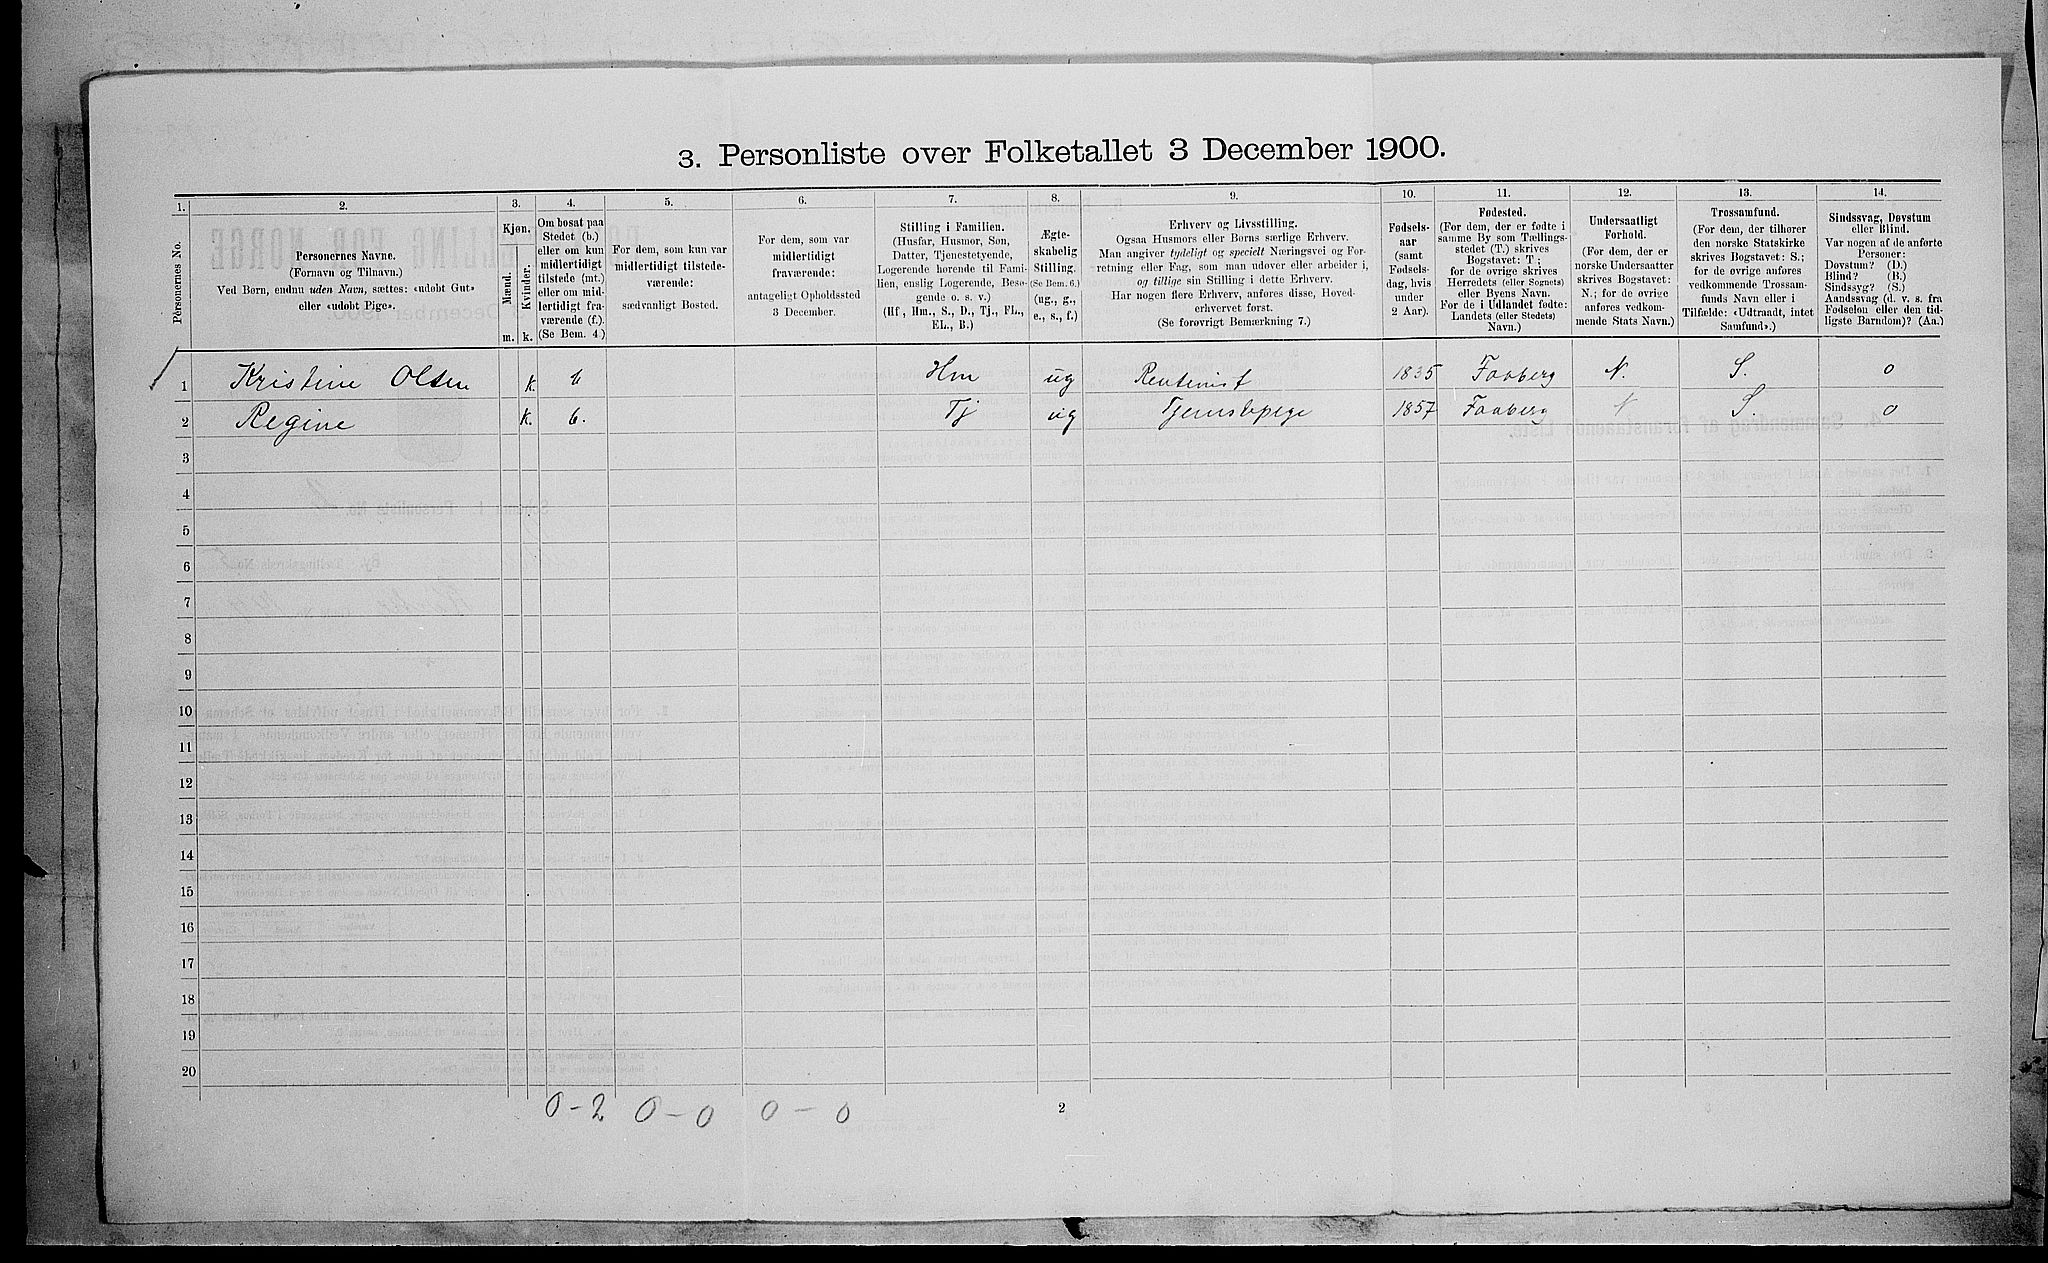 3. Personliste over Folketallet 3 December 1900.
1. 2. 3. 4. 5. 6. 7. 8. 9. 10. 11. 12. 13. 14.
Personernes No.
Personernes Navne.
(Fornavn og Tilnavn.)
Ved Børn, endnu uden Navn, sættes: «udøbt Gut»
eller «udøbt Pige».
Kjøn.
Mænd.
Kvinder.
m. k.
Om bosat paa
Stedet (b.)
eller om kun
midlertidigt
tilstede (mt.)
eller om mid-
lertidigt fra-
værende (f.).
(Se Bem. 4.)
For dem, som kun var
midlertidigt tilstede-
værende:
sædvanligt Bosted.
For dem, som var
midlertidigt
fraværende:
antageligt Opholdssted
3 December.
Stilling i Familien.
(Husfar, Husmor, Søn,
Datter, Tjenestetyende,
Logerende hørende til Fami-
lien, enslig Logerende, Besø-
gende o. s. v.)
(Hf, Hm., S., D., Tj., FL.,
EL., B.)
Ægte-
skabelig
Stilling.
(Se Bem. 6.)
(ug., g.,
e., s., f.)
Erhverv og Livsstilling.
Ogsaa Husmors eller Børns særlige Erhverv.
Man angiver tydeligt og specielt Næringsvei og For-
retning eller Fag, som man udøver eller arbeider i,
og tillige sin Stilling i dette Erhverv.
Har nogen flere Erhverv, anføres disse, Hoved-
erhvervet først.
(Se forøvrigt Bemærkning 7.)
Fødsels-
aar
(samt
Fødsels-
dag, hvis
under
2 Aar).
Fødested.
(For dem, der er fødte i
samme By som Tællings-
stedet (T.) skrives
Bogstavet: T;
for de øvrige skrives
Herredets (eller Sognets)
eller Byens Navn.
For de i Udlandet fødte:
Landets (eller Stedets)
Navn.)
Undersaatligt
Forhold.
(For dem, der er
norske Undersaatter
skrives Bogstavet:
N.; for de øvrige
anføres vedkom-
mende Stats Navn.)
Trossamfund.
(For dem, der tilhører
den norske Statskirke
skrives Bogstavet: S.;
for de øvrige anføres
vedkommende Trossam-
funds Navn eller i
Tilfælde: «Udtraadt, intet
Samfund».)
Sindssvag, Døvstum
eller Blind.
Var nogen af de anførte
Personer:
Døvstum? (D.)
Blind? (B.)
Sindssyg? (S.)
Aandssvag (d. v. s. fra
Fødselen eller den tid-
ligste Barndom)? (Aa.)
1 Kristine Olsen k. b Hm ug Rentenist 1835 Faaberg N. S. 0
2 Regine k. b. Tj ug Tjenestepige 1857 Faaberg N S. 0
3
4
5
6
7
8
9
10
11
12
13
14
15
16
17
18
19
20
0 - 2 0 - 0 0 - 0
2